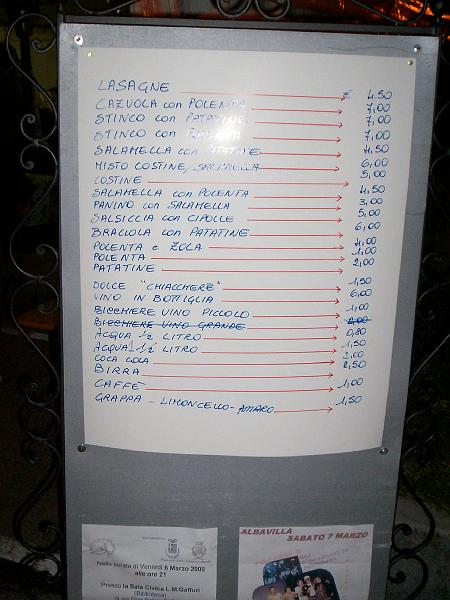 LASAGNE € 4,50
CAZUOLA con POLENTA 7,00
STINCO con PATATINE 7,00
STINCO con 7,00
SALAMELLA con PATATINE 4,50
MISTO COSTINE/SALAMELLA 6,00
COSTINE 5,00
SALAMELLA con POLENTA 4,50
PANINO con SALAMELLA 3,00
SALSICCIA con CIPOLLE 5,00
BRACIOLA con PATATINE 6,00
POLENTA e ZOLA 4,00
POLENTA 1,00
PATATINE 2,00
DOLCE "CHIACCHERE" 1,50
VINO IN BOTIGLIA 6,00
BICCHIERE VINO PICCOLO 1,00
BICCHIERE VINO GRANDE
ACQUA ½ LITRO 0,80
ACQUA 1½ LITRO 1,50
COCA COLA 2,00
BIRRA 2,50
CAFFÈ 1,00
GRAPPA - LIMONCELLO - AMARO 1,50
Nella serata di Venerdì 6 Marzo 2009
alle ore 21
Presso la Sala Civica L.M.Gaffuri
(Biblioteca)
ALBAVILLA
SABATO 7 MARZO